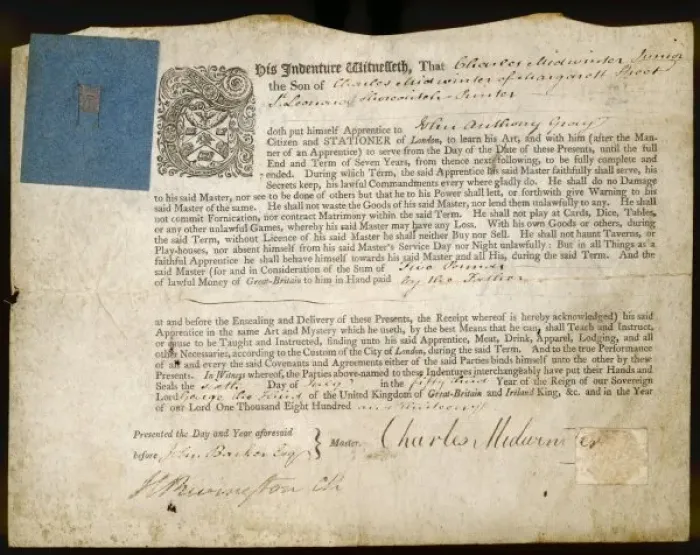 His Indenture Witnesseth, That Charles Midwinter Junior
the Son of Charles Midwinter of Margarett Street
St Leonard Shoreditch Printer
doth put himself Apprentice to John Anthony
Citizen and STATIONER of London, to learn his Art, and with him (after the Man-
ner of an Apprentice) to serve from the Day of the Date of these Presents, until the full
End and Term of Seven Years, from thence next following, to be fully complete and
ended. During which Term, the said Apprentice his said Master faithfully shall serve, his
Secrets keep, his lawful Commandments every where gladly do. He shall do no Damage
to his said Master, nor see to be done of others but that he to his Power shall let, or forthwith give Warning to his
said Master of the same. He shall not waste the Goods of his said Master, nor lend them unlawfully to any. He shall
not commit Fornication, nor contract Matrimony within the said Term. He shall not play at Cards, Dice, Tables,
or any other unlawful Games, whereby his said Master may have any Loss. With his own Goods or others, during
the said Term, without Licence of his said Master he shall neither Buy nor Sell. He shall not haunt Taverns, or
Play-houses, nor absent himself from his said Master's Service Day nor Night unlawfully: But in all Things as a
faithful Apprentice he shall behave himself towards his said Master and all His, during the said Term. And the
said Master (for and in Consideration of the Sum of Two Pounds
of lawful Money of Great-Britain to him in Hand paid by the Father
at and before the Ensealing and Delivery of these Presents, the Receipt whereof is hereby acknowledged) his said
Apprentice in the same Art and Mystery which he useth, by the best Means that he can, shall Teach and Instruct,
or cause to be Taught and Instructed, finding unto his said Apprentice, Meat, Drink, Apparel, Lodging, and all
other Necessaries, according to the Custom of the City of London, during the said Term. And to the true Performance
of all and every the said Covenants and Agreements either of the said Parties binds himself unto the other by these
Presents. In Witness whereof, the Parties above-named to these Indentures interchangeably have put their Hands and
Seals the sixth Day of July in the fifty third Year of the Reign of our Sovereign
Lord George the Third of the United Kingdom of Great-Britain and Ireland King, &c. and in the Year
of our Lord One Thousand Eight Hundred and thirteen
Presented the Day and Year aforesaid
before John Barker Esq Master. Charles Midwinter